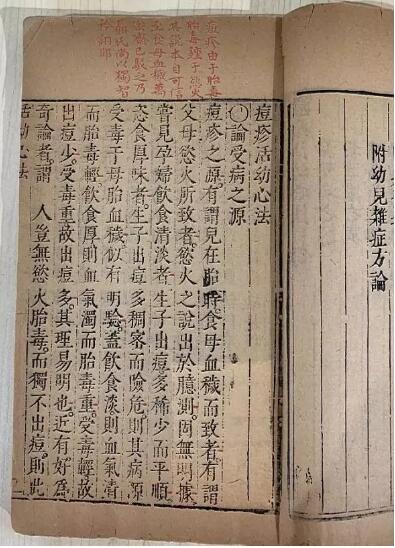 附幼兒雜症方論
痘疹由于胎毒
胎毒鍾于淫火
其說本自可信
至食母血穢萬
密齋已駁之乃
聶氏尚以獨智
痘疹活幼心法
〇論受病之源
痘疹之源有謂兒在胎時食母血穢而致者有謂
父母慾火所致者慾火之說出於臆測固無明據
嘗見孕婦飲食清淡者生子出痘多稀少而平順
恣食厚味者生子出痘多稠密而險危則其病源
受毒于母胎血穢似有明驗蓋飲食淡則血氣清
而胎毒輕飲食厚則血氣濁而胎毒重受毒輕故
出痘少受毒重故出痘多其理易明也近有好為
奇論者謂人豈無慾火胎毒而獨不出痘則此
活幼心法